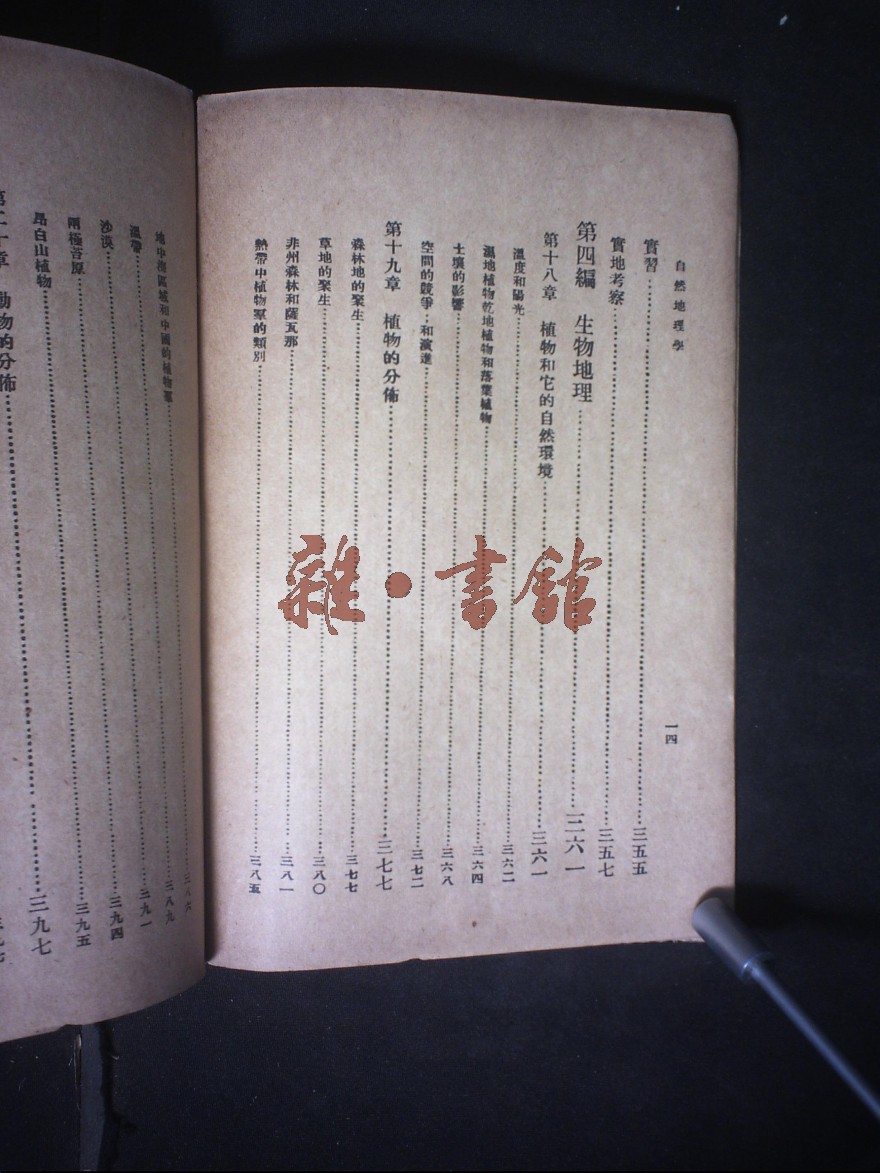 自然地理學
一四
實習……三五五
實地考察……三五七
第四編 生物地理……三六一
第十八章 植物和它的自然環境……三六一
溫度和陽光……三六二
濕地植物乾地植物和落葉植物……三六四
土壤的影響……三六八
空間的競爭;和演進……三七二
第十九章 植物的分佈……三七七
森林地的聚生……三七七
草地的聚生……三八〇
非州森林和薩瓦那……三八一
熱帶中植物羣的類別……三八五
地中海區域和中國的植物羣……三八六
溫帶……三八九
沙漠……三九一
兩極苔原……三九四
昂白山植物……三九五
第二十章 動物的分佈……三九七
雜·書館